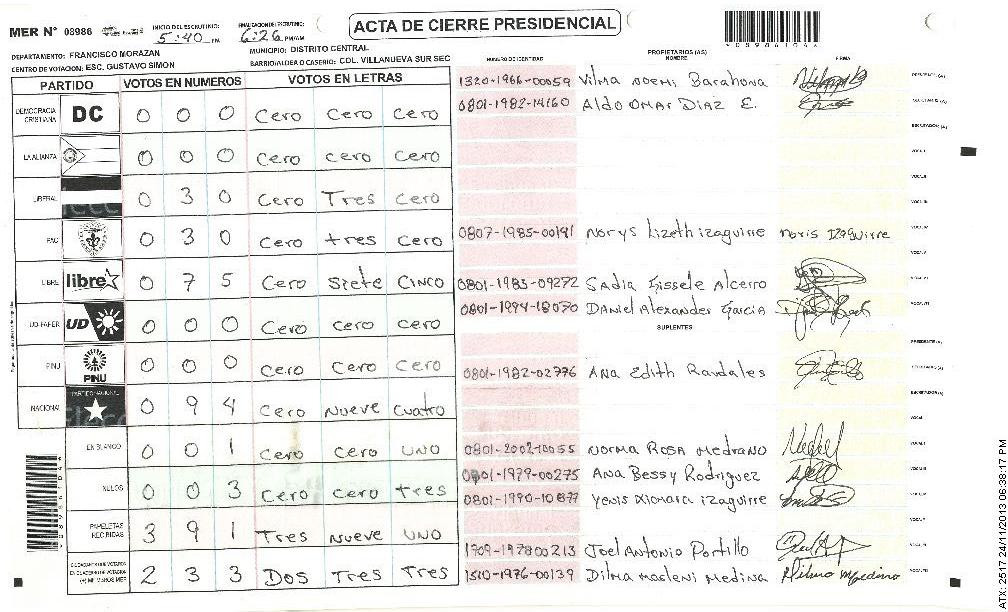 ACTA DE CIERRE PRESIDENCIAL
MER N° 08986
INICIO DEL ESCRUTINIO: 5:40 PM
FINALIZACION DEL ESCRUTINIO: 6:26 PM/AM
DEPARTAMENTO: FRANCISCO MORAZAN
MUNICIPIO: DISTRITO CENTRAL
CENTRO DE VOTACION: ESC. GUSTAVO SIMON
BARRIO/ALDEA O CASERIO: COL. VILLANUEVA SUR SEC
PARTIDO VOTOS EN NUMEROS VOTOS EN LETRAS
DEMOCRACIA CRISTIANA DC 0 0 0 Cero Cero Cero
LA ALIANZA 0 0 0 Cero Cero Cero
LIBERAL 0 3 0 Cero Tres Cero
PAC 0 3 0 Cero tres Cero
LIBRE libre 0 7 5 Cero Siete CINCO
UD-FAPER UD 0 0 0 Cero Cero Cero
PINU PINU 0 0 0 Cero Cero Cero
NACIONAL PARTIDO NACIONAL 0 9 4 Cero Nueve Cuatro
EN BLANCO 0 0 1 Cero Cero UNO
NULOS 0 0 3 Cero Cero Tres
PAPELETAS RECIBIDAS 3 9 1 Tres Nueve UNO
2 3 3 DOS Tres Tres
NUMERO DE IDENTIDAD PROPIETARIOS (AS) NOMBRE FIRMA
1320-1966-00059 Vilma Noemi Barahona
0801-1982-14160 Aldo Omar Diaz E.
0807-1985-00191 Norys Lizeth izaguirre Noris IZaguirre
0801-1983-09272 Sadia Gissele Alcerro
0801-1994-18070 Daniel Alexander Garcia
SUPLENTES
0801-1982-02776 Ana Edith Raudales
0801-2002-10055 Norma Rosa Medrano
0801-1979-00275 Ana Bessy Rodriguez
0801-1990-10877 Yenis Xiomara izaguirre
1709-197800213 Joel Antonio Portillo
1510-1976-00139 Dilma Masleni Medina Dilma Medina
ATX: 2517 24/11/2013 06:38:17 PM